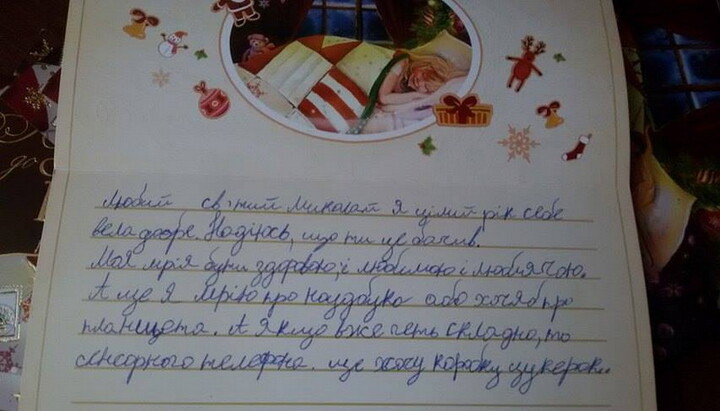 Любий святий Миколай я цілий рік себе
вела добре. Надіюсь, що ти це бачив.
Моя мрія бути здоровою, і любимою і люблячою.
А ще я мрію про ноудбука або хочяб про
планшета. А якщо вже геть складно, то
сенсорного телефона. ще хочу коробку цукерок..
до